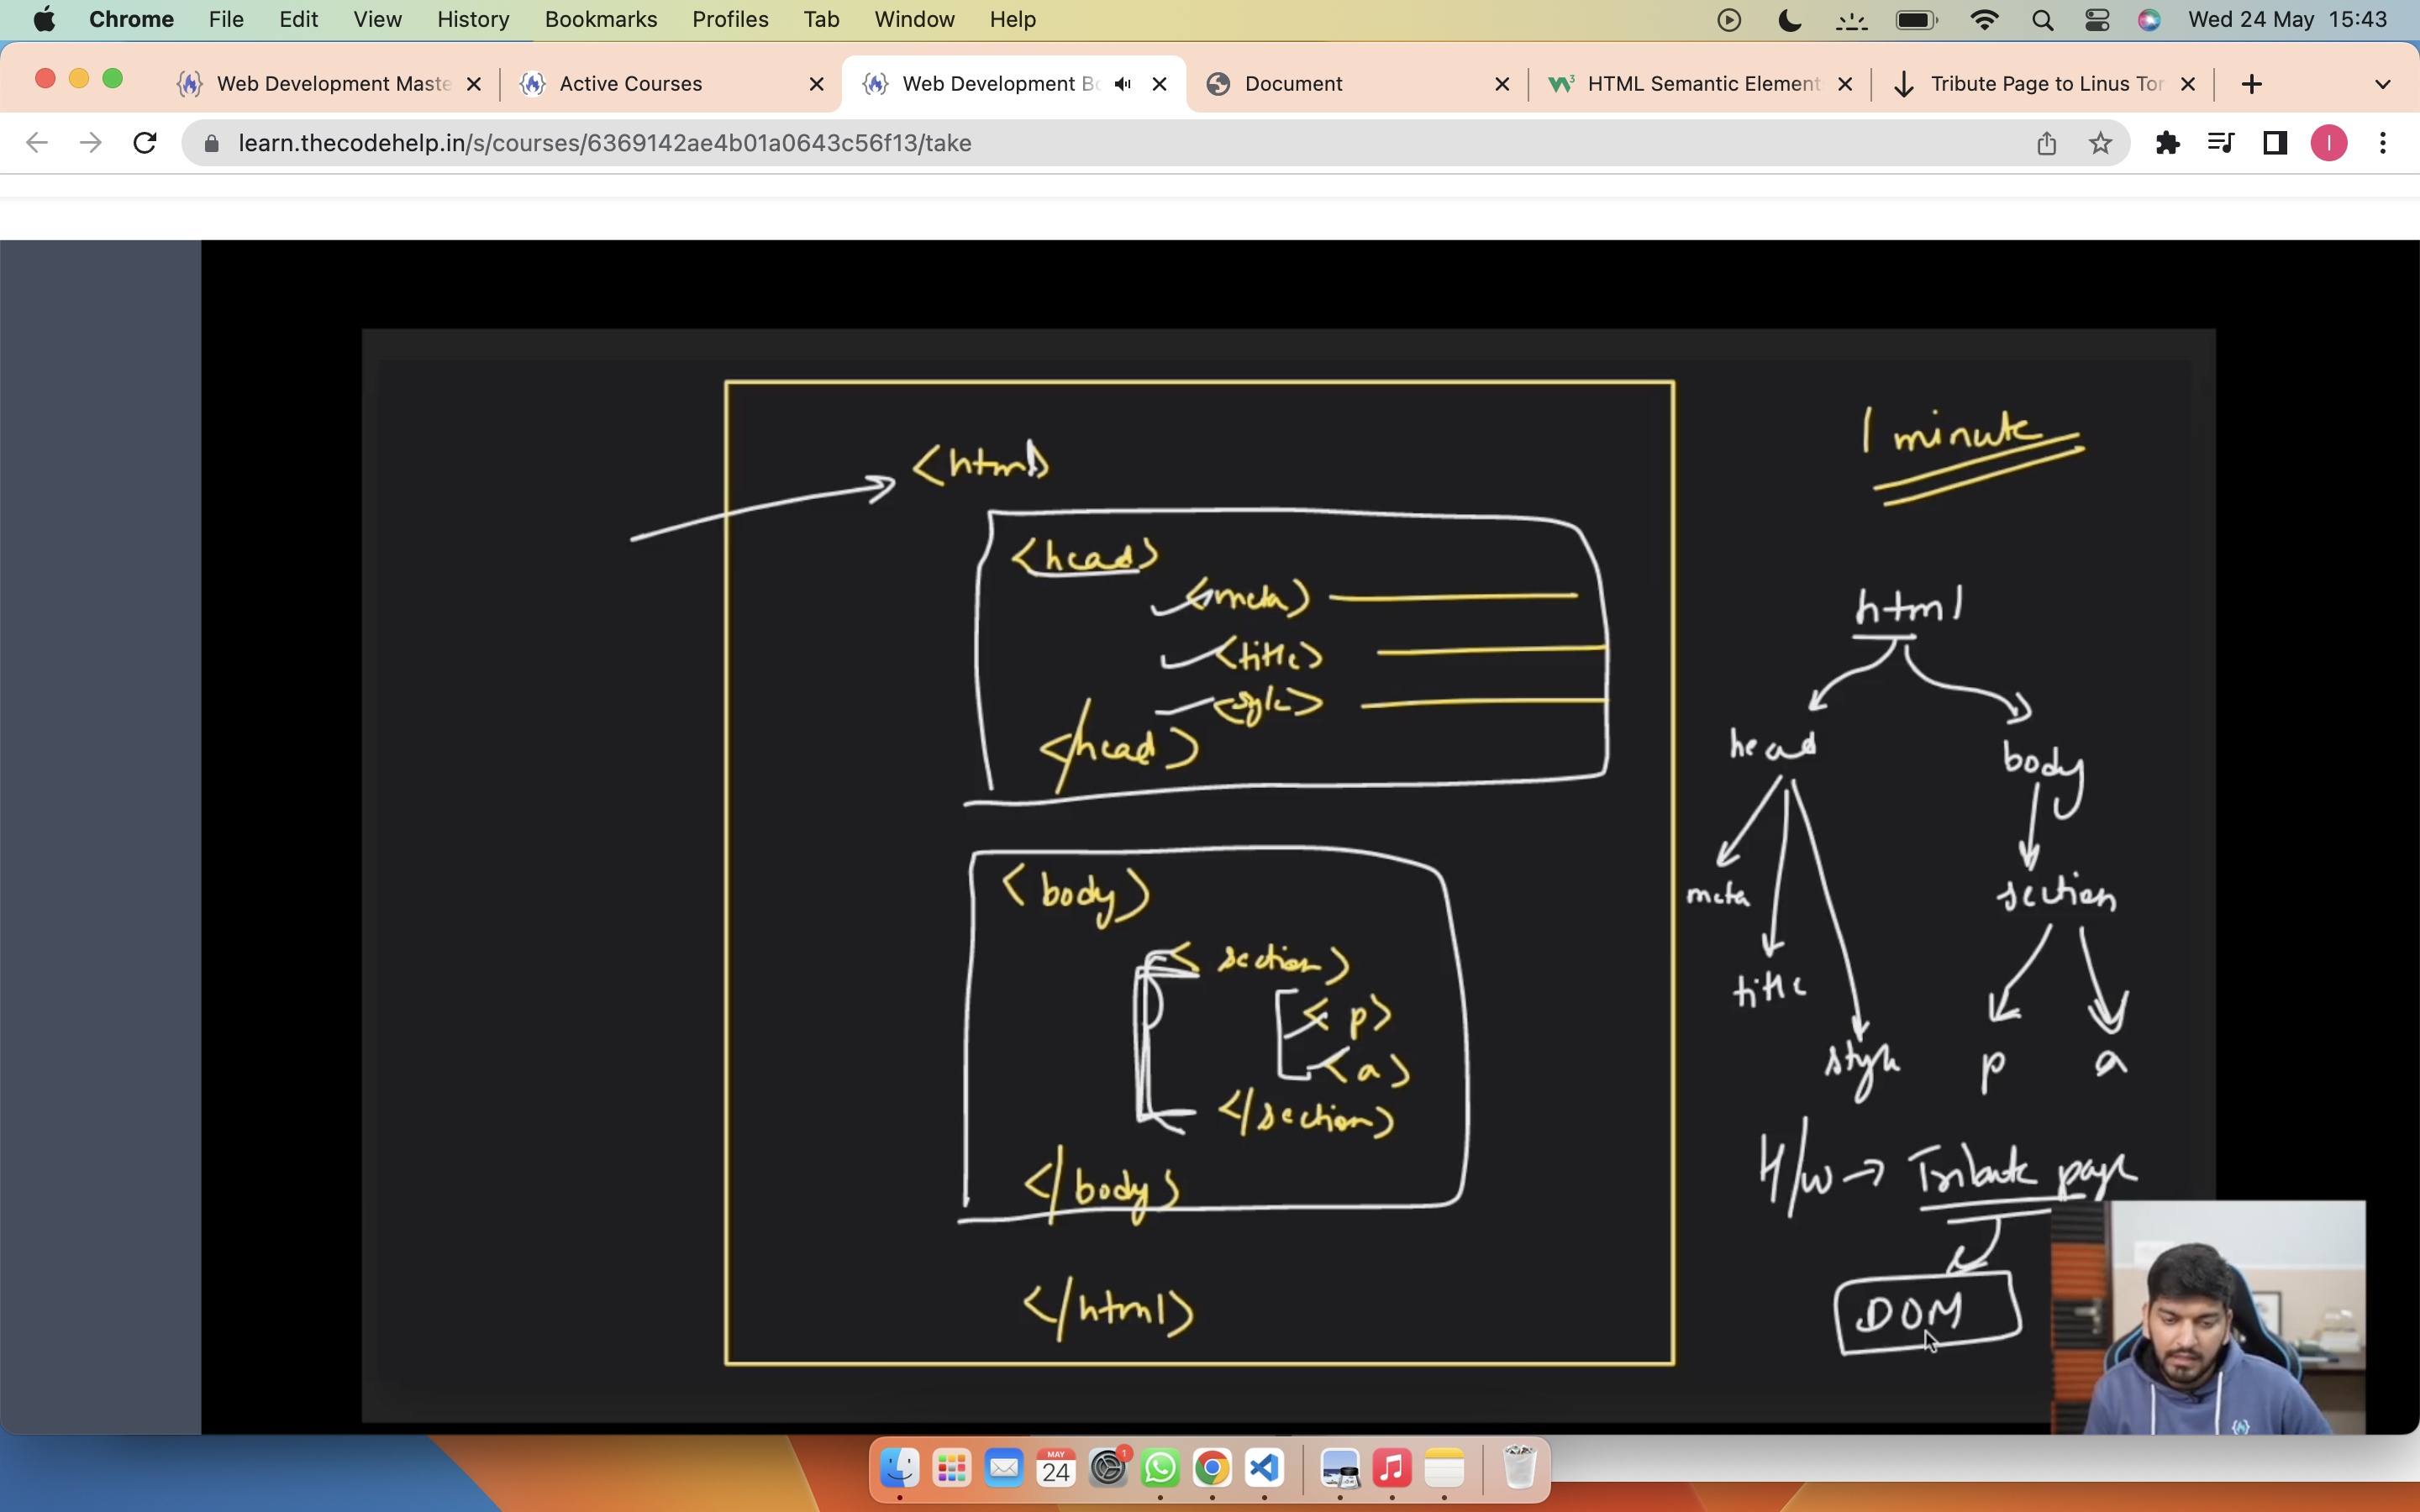 Chrome File Edit View History Bookmarks Profiles Tab Window Help Wed 24 May 15:43
Web Development Maste Active Courses Web Development Bo Document HTML Semantic Element Tribute Page to Linus Tor
learn.thecodehelp.in/s/courses/6369142ae4b01a0643c56f13/take
I
<html>
<head>
<meta>
<title>
<style>
</head>
<body>
<section>
<p>
<a>
</section>
</body>
</html>
1 minute
html
head body
meta section
title
style p a
H/W → Tribute page
DOM
MAY
24
1